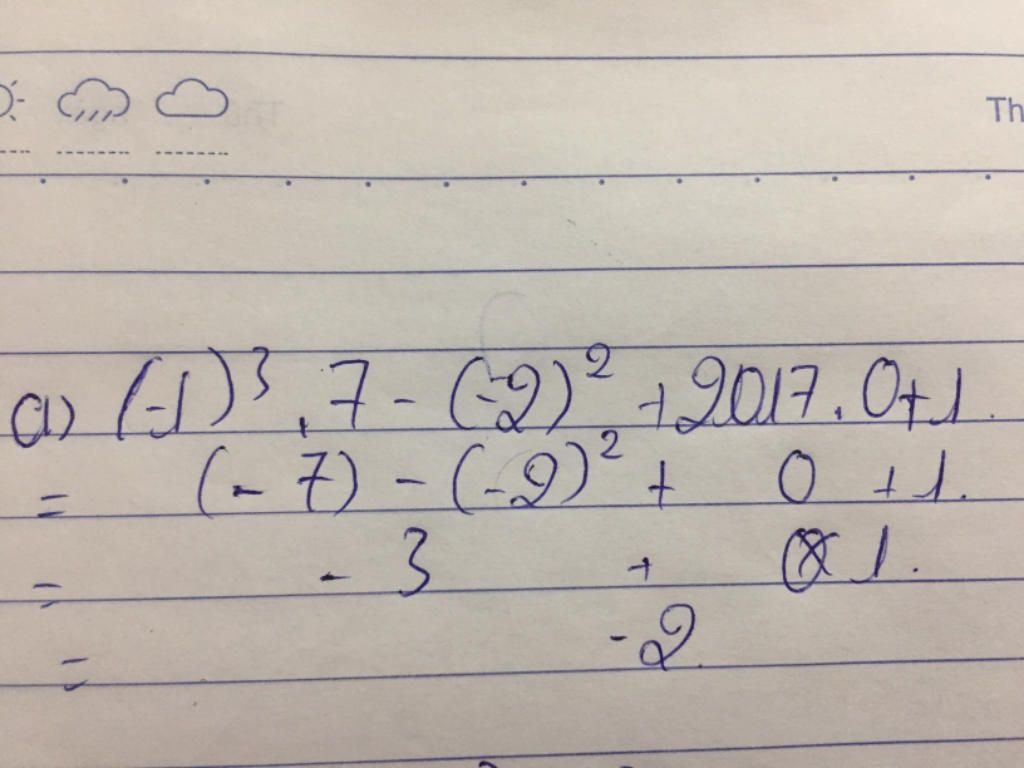 Th
a) (-1)³ . 7 - (-2)² + 2017 . 0 + 1.
= (-7) - (-2)² + 0 + 1.
= - 3 + 1.
= -2.